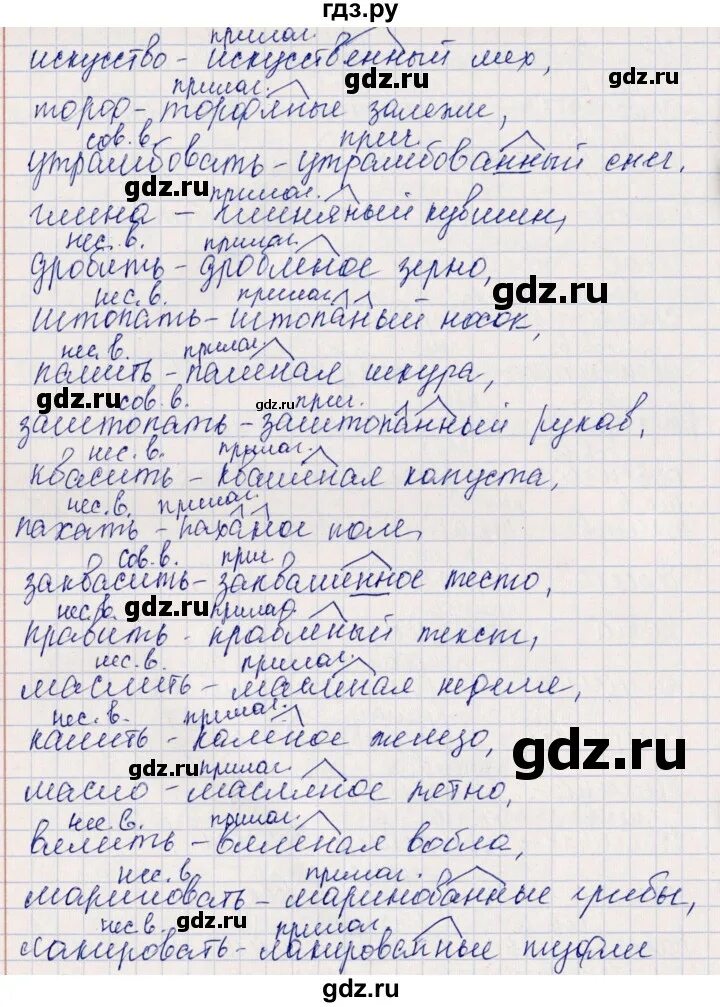 гдз.ру
прилаг.
искусство – искусственный мех,
gdz.ru
gdz.ru
прилаг.
торф – торфяные залежи,
сов. в. прич.
утрамбовать – утрамбованный снег.
gdz.ru
прилаг.
глина – глиняный кувшин,
нес. в. прилаг.
дробить – дробленое зерно,
нес. в. прилаг.
gdz.ru
штопать – штопаный носок,
нес. в. прилаг.
палить – паленая шкура,
gdz.ru
сов. в. gdz.ru прич.
заштопать – заштопанный рукав,
нес. в. прилаг.
квасить – квашеная капуста,
нес. в. прилаг.
пахать – паханое поле,
сов. в. прич.
заквасить – заквашенное тесто,
нес. в. gdz.ru прилаг
править – правленый текст,
нес. в. прилаг.
маслить – масленая неделя,
нес. в. прилаг.
калить – каленое железо,
gdz.ru
gdz.ru
прилаг.
масло – масляное пятно,
нес. в. прилаг.
вялить – вяленая вобла,
нес. в. прилаг.
мариновать – маринованные грибы,
нес. в. gdz.ru прилаг.
лакировать – лакированные туфли
gdz.ru